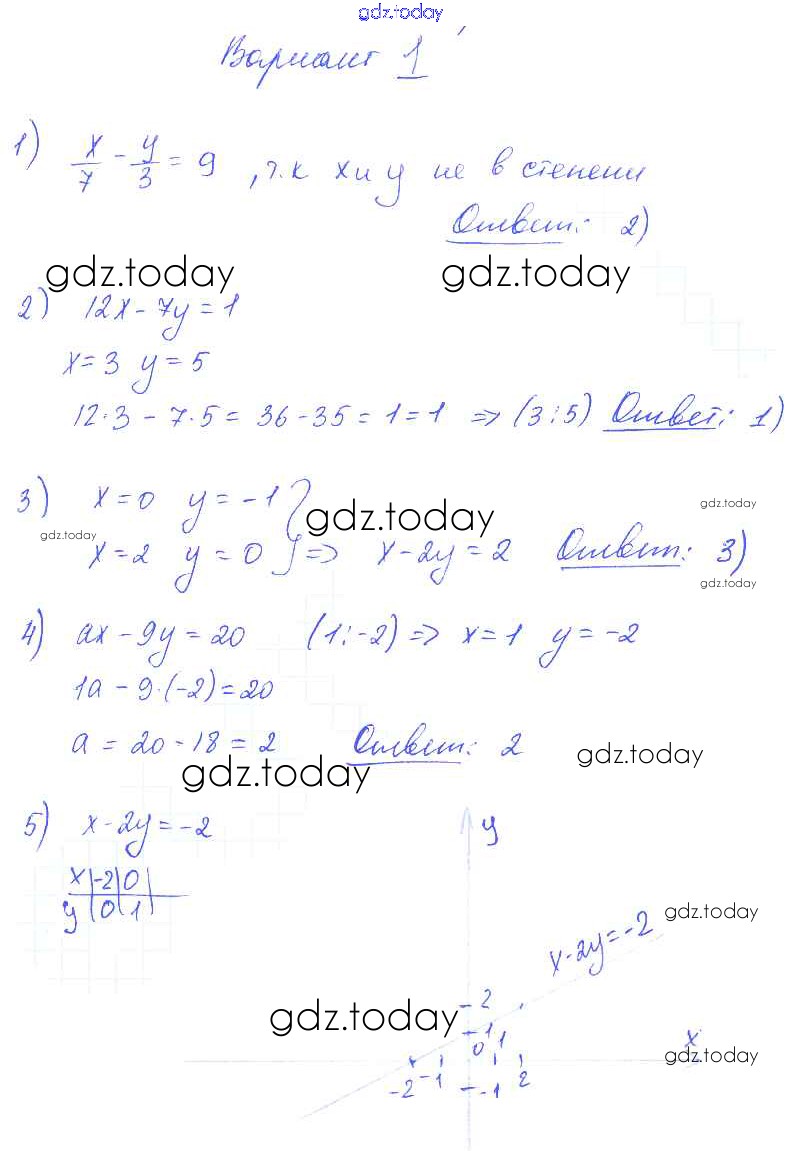 gdz.today
Вариант 1
1) x/7 - y/3 = 9, т.к x и y не в степени
Ответ: 2)
gdz.today gdz.today
2) 12x - 7y = 1
x = 3 y = 5
12·3 - 7·5 = 36 - 35 = 1 = 1 => (3;5) Ответ: 1)
3) x = 0 y = -1 }
gdz.today gdz.today gdz.today
x = 2 y = 0 } => x - 2y = 2 Ответ: 3)
gdz.today
4) ax - 9y = 20 (1;-2) => x = 1 y = -2
1a - 9·(-2) = 20
a = 20 - 18 = 2 Ответ: 2
gdz.today gdz.today
5) x - 2y = -2
y
x | -2 | 0
y | 0 | 1
gdz.today
x - 2y = -2
gdz.today
2
1
0 1
x
gdz.today
-2 -1 -1 2